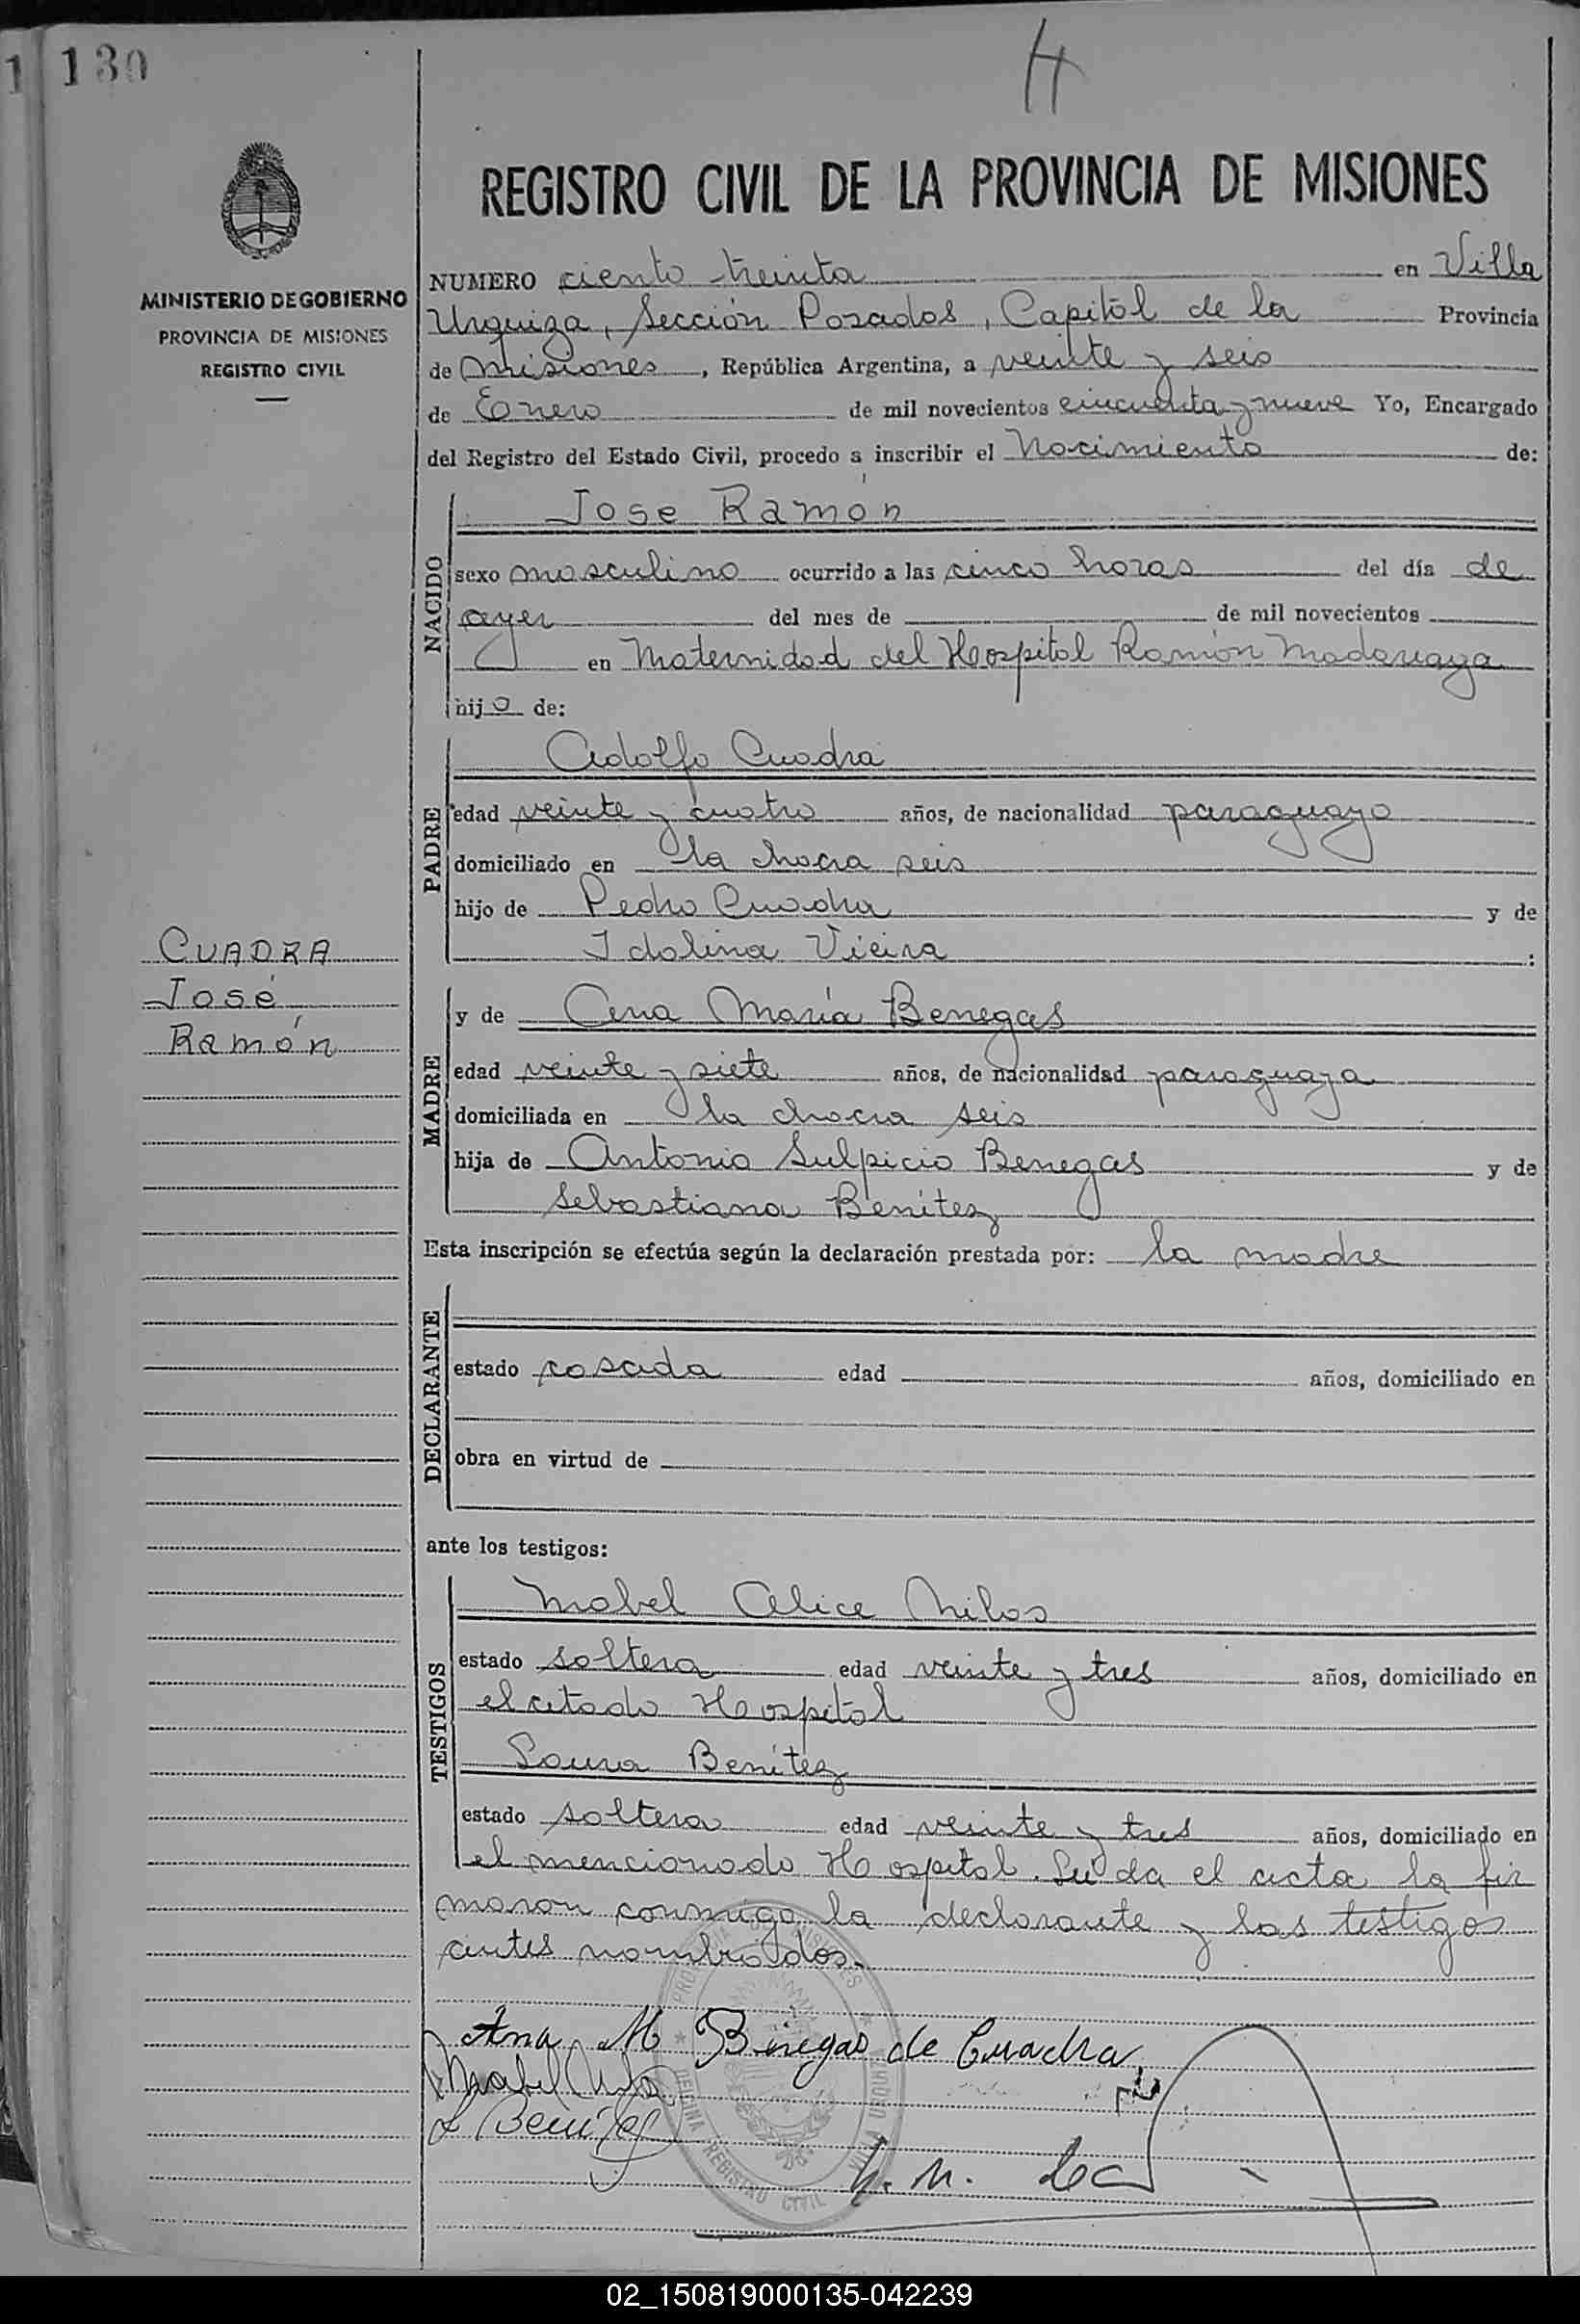 130
H
MINISTERIO DE GOBIERNO
PROVINCIA DE MISIONES
REGISTRO CIVIL
CUADRA
José
Ramón
REGISTRO CIVIL DE LA PROVINCIA DE MISIONES
NUMERO ciento treinta en Villa
Urquiza, Sección Posadas, Capital de la Provincia
de Misiones, República Argentina, a veinte y seis
de Enero de mil novecientos cincuenta y nueve Yo, Encargado
del Registro del Estado Civil, procedo a inscribir el Nacimiento de:
NACIDO
Jose Ramón
sexo masculino ocurrido a las cinco horas del día de
ayer del mes de de mil novecientos
en Maternidad del Hospital Ramón Madariaga
hijo de:
PADRE
Adolfo Cuadra
edad veinte y cuatro años, de nacionalidad paraguayo
domiciliado en la chacra seis
hijo de Pedro Cuadra y de
Idolina Vieira :
MADRE
y de Ana María Benegas
edad veinte y siete años, de nacionalidad paraguaya
domiciliada en la chacra seis
hija de Antonio Sulpicio Benegas y de
Sebastiana Benítez
Esta inscripción se efectúa según la declaración prestada por: la madre
DECLARANTE
estado casada edad años, domiciliado en
obra en virtud de
ante los testigos:
TESTIGOS
Mabel Alice
estado soltera edad veinte y tres años, domiciliado en
el citado Hospital
Laura Benítez
estado soltera edad veinte y tres años, domiciliado en
el mencionado Hospital. Leída el acta la fir
maron conmigo la declarante y las testigos
antes nombrados.
Ana M Benegas de Cuadra
Mabel
L Benítez
02_150819000135-042239